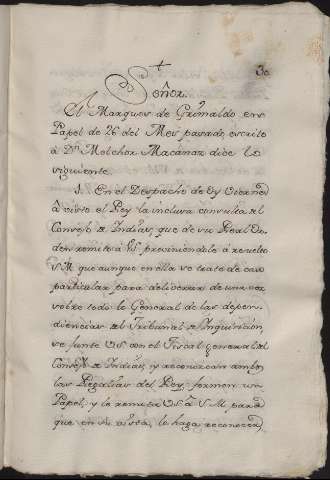 30
Señor.
El Marques de Grimaldo en
Papel de 26 del Mes pasado escrito
à Dn. Melchor Macanaz dice lo
siguiente.
1. En el Despacho de oy
à visto el Rey la inclusa consulta del
Consejo de Indias, que de su Real
den remito à VS. previniendole à resuelto
S.M. que aunque en ella se trata de caso
particular para deliverar de una vez
sobre todo lo General de las depen-
diencias del Tribunal de Inquisicion,
se Junte VS. con el Fiscal general del
Consejo de Indias, y reconozcan ambos
las Regalias del Rey, formen un
Papel, y le remita VS. à S.M. para
que en su vista, lo haga reconocer